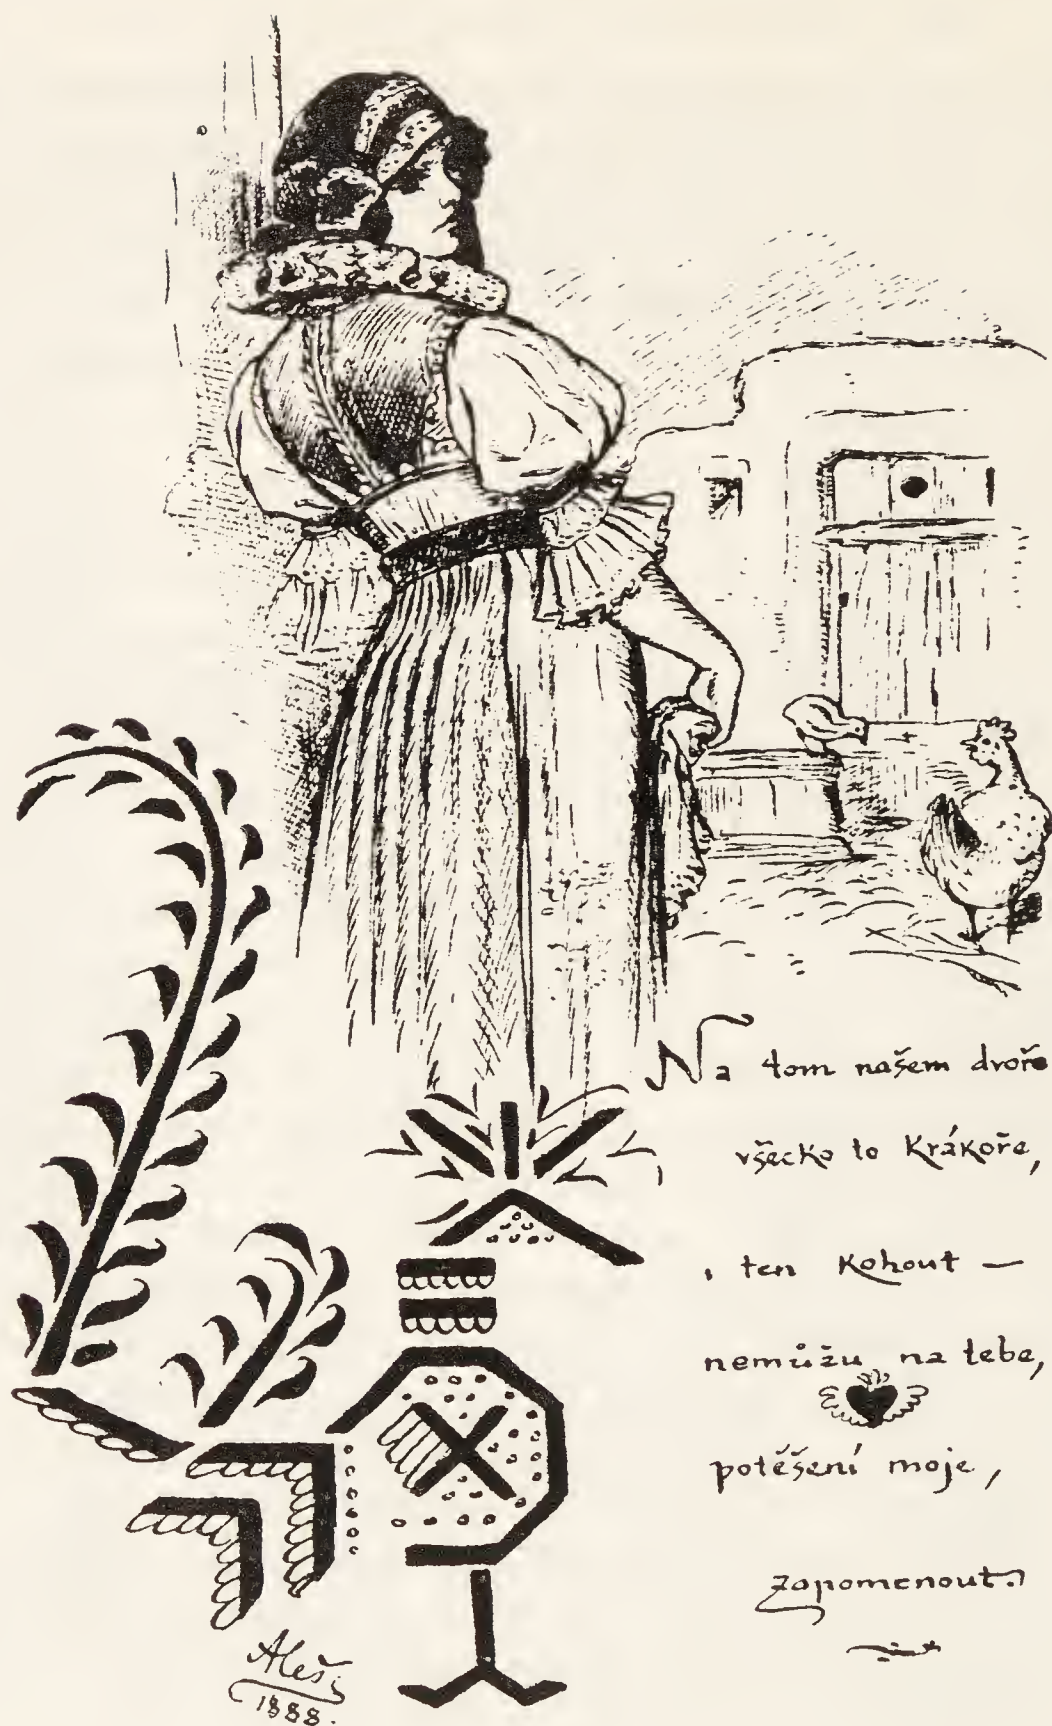 Na tom našem dvoře
všecko to krákoře,
i ten kohout —
nemůžu na tebe,
potěšení moje,
zapomenout.
Aleš
1888.